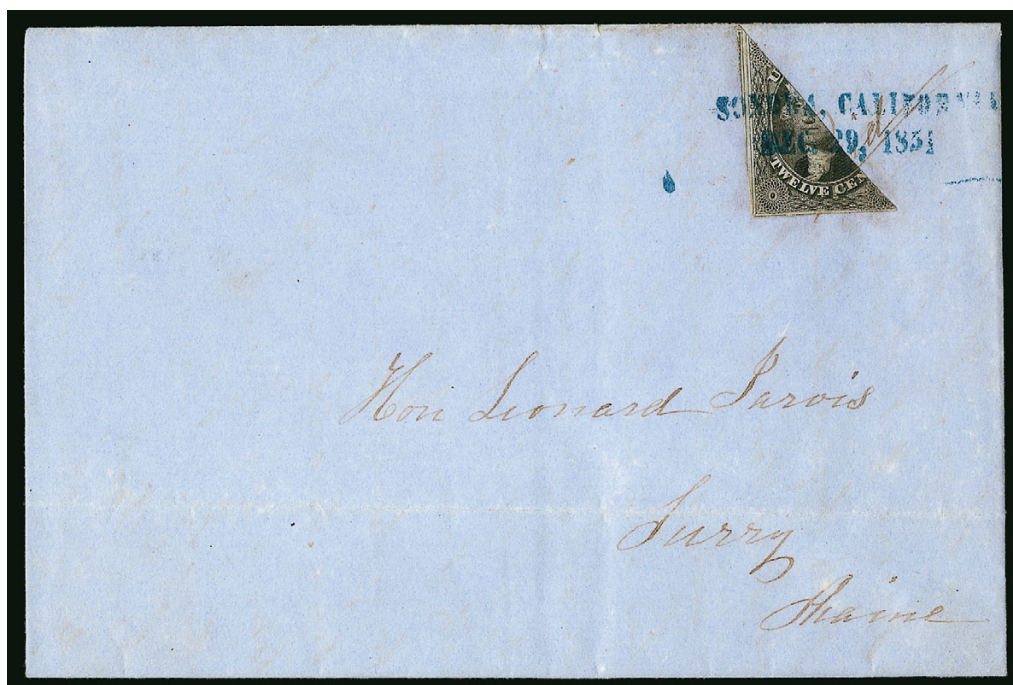 SONORA, CALIFORNIA
DEC. 29, 1851
Pd
U
TWELVE CEN
Hon Leonard Jarvis
Surry
Maine